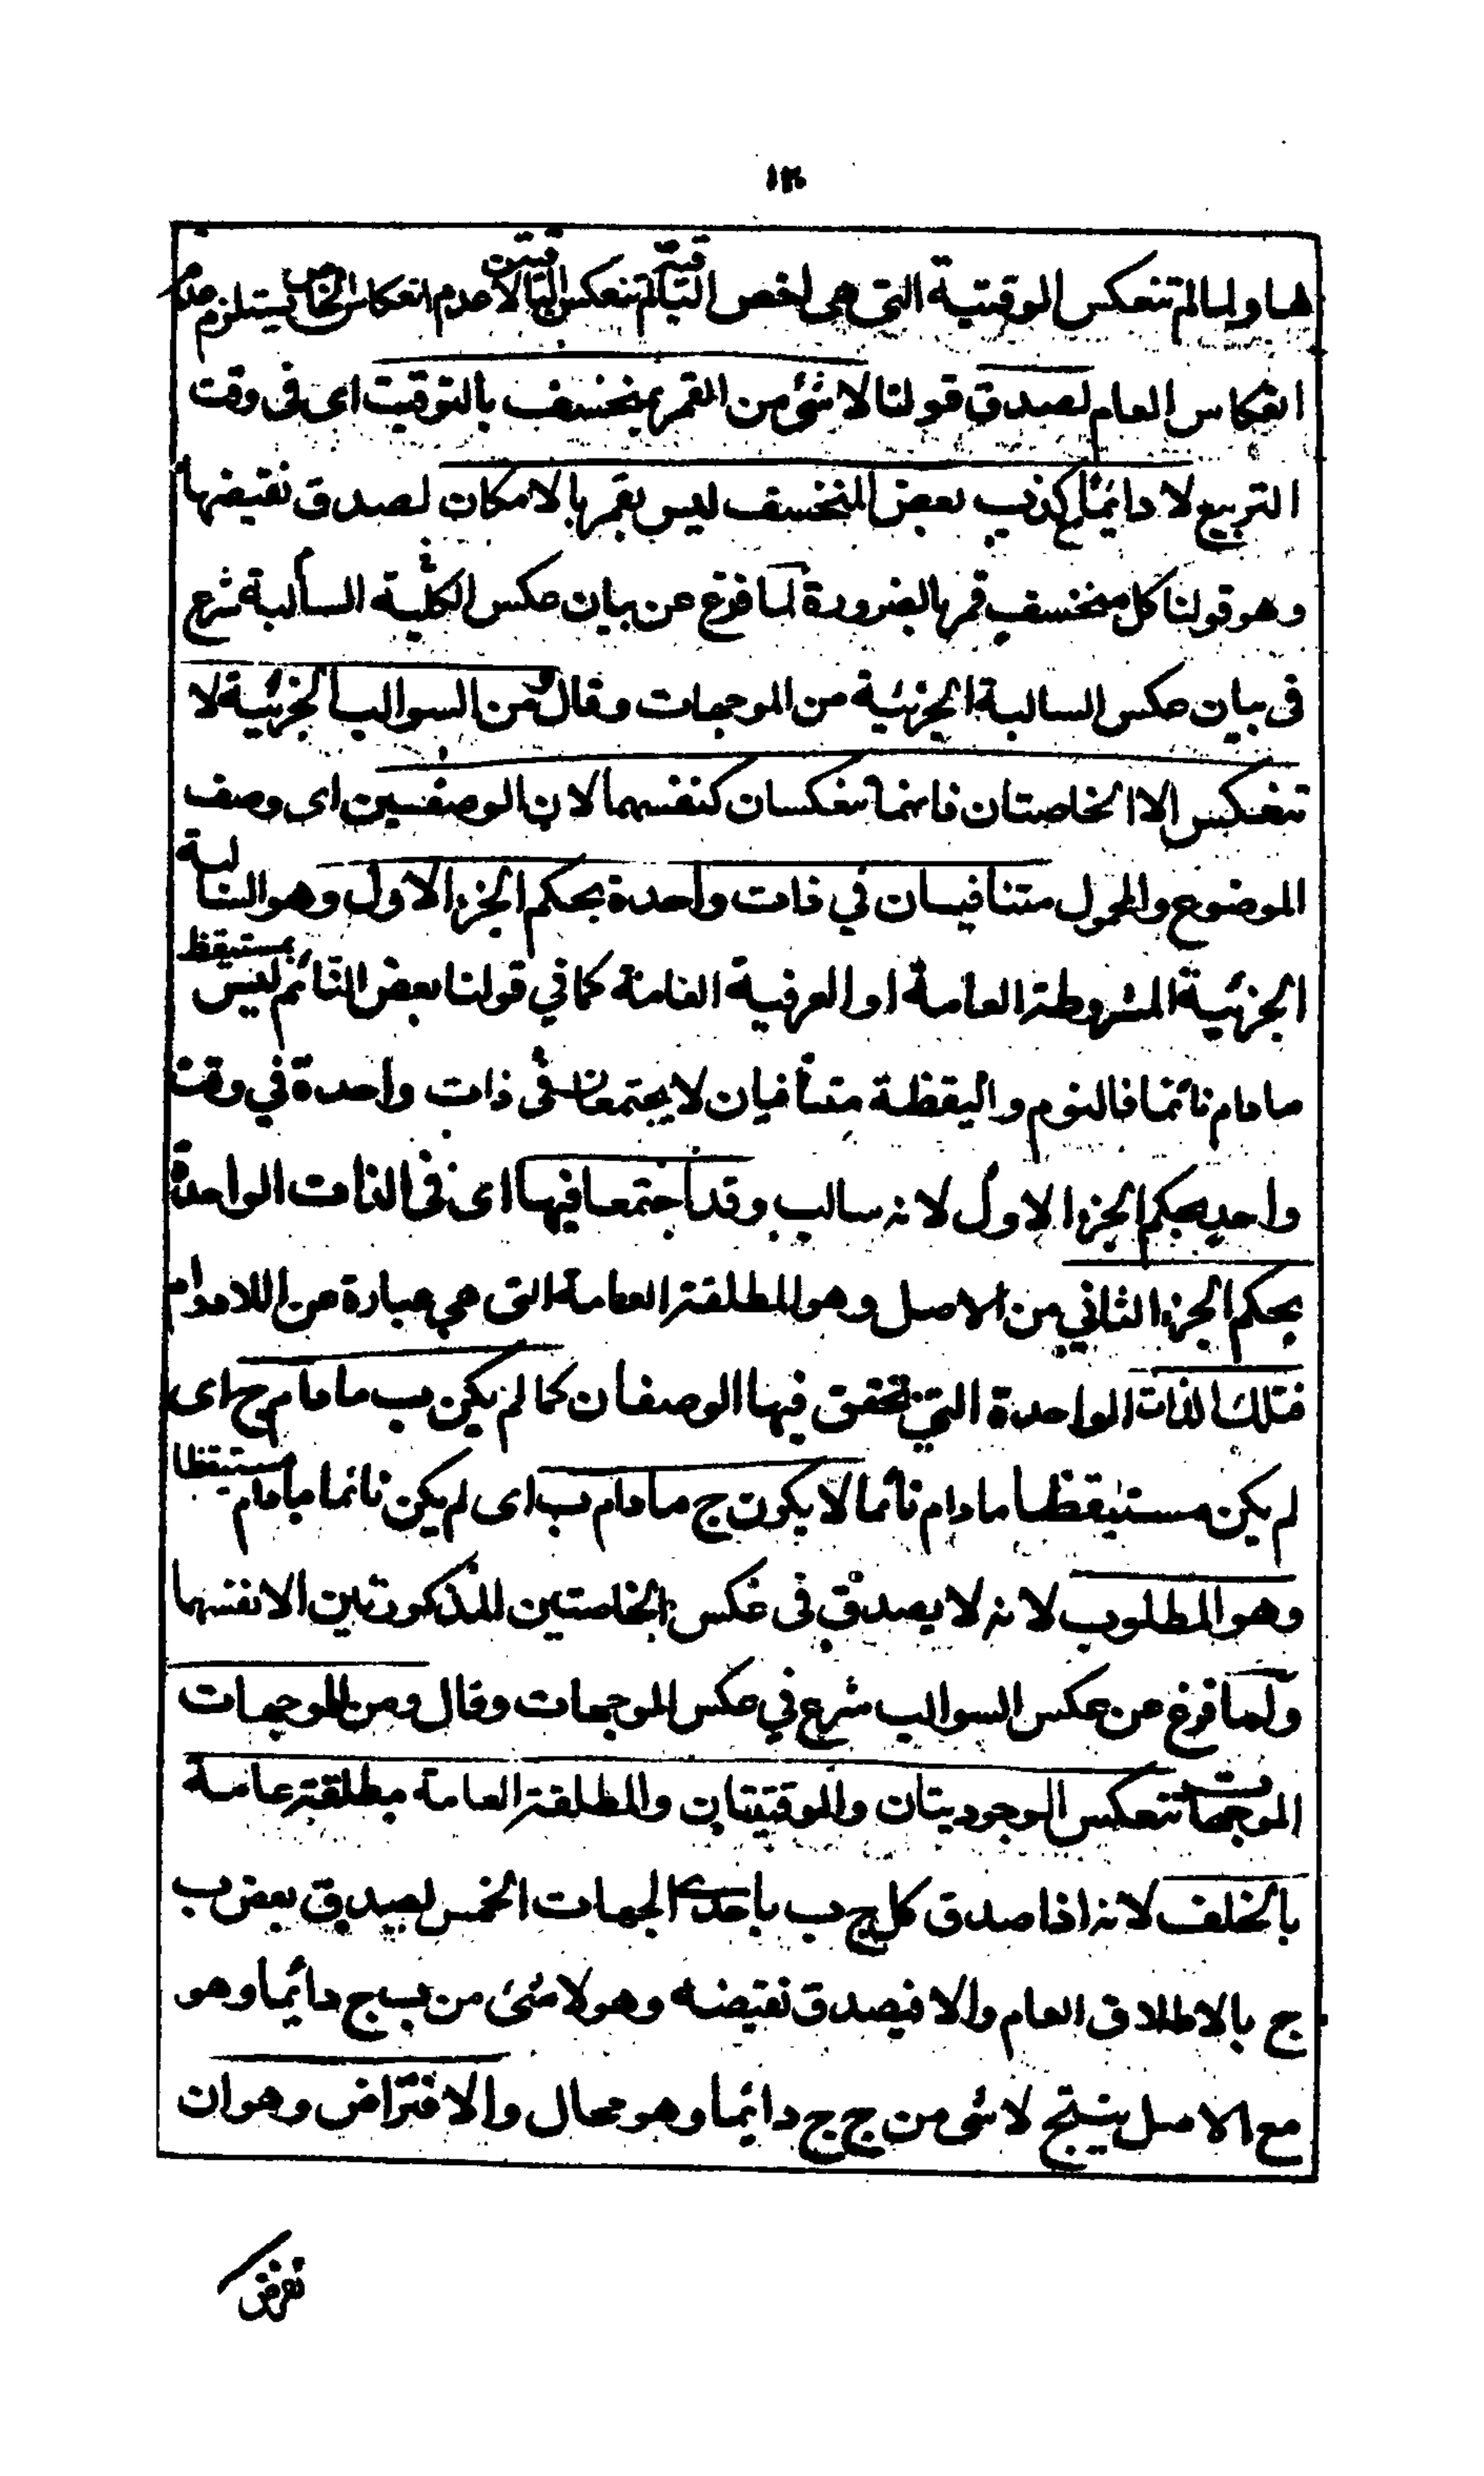 ١٢٠
ها ولما لم تنعكس الوقتية التى هى اخص البا قية لم تنعكس البا قيتن لان عدم انعكاس الخاص يستلزم عدم
انعكاس العام لصدق قولنا لا شئ من القمر بمنخسف بالتوقيت اى فى وقت
التربيع لا دائما مع كذب بعض المنخسف ليس بقمر بالامكان لصدق نقيضها
وهو قولنا كل منخسف قمر بالضرورة لما فرغ عن بيان عكس الكلية السالبة شرع
فى بيان عكس السالبة الجزئية من الموجهات وقال ومن السوالب الجزئية لا
تنعكس الا الخاصتان فانهما تنعكسان كنفسهما لان الوصفين اى وصف
الموضوع والمحمول متنافيان في ذات واحدة بحكم الجزء الاول وهو السالبة
الجزئية المشروطة العامة او العرفية العامة كما في قولنا بعض النائم ليس بمستيقظ
ما دام نائما فالنوم واليقظة متنافيان لا يجتمعان فى ذات واحدة في وقت
واحد بحكم الجزء الاول لانه سالب وقد اجتمعا فيها اى فى الذات الواحدة
بحكم الجزء الثاني من الاصل وهو المطلقة العامة التى هي عبارة عن اللادوام
فتلك الذات الواحدة التى تحقق فيها الوصفان كما لم يكن ب ما دام ج اى
لم يكن مستيقظا ما دام نائما لا يكون ج ما دام ب اى لم يكن نائما ما دام مستيقظا
وهو المطلوب لانه لا يصدق فى عكس الخاصتين المذكورتين الا نفسها
ولما فرغ عن عكس السوالب شرع في عكس الموجهات وقال ومن الموجهات
الموجبات تنعكس الوجوديتان والوقتيتان والمطلقة العامة مطلقة عامة
بالخلف لانه اذا صدق كل ج ب باحدى الجهات الخمس لصدق بعض ب
ج بالاطلاق العام والا فيصدق نقيضه وهو لا شئ من ب ج دائما وهو
مع الاصل ينتج لا شئ من ج ج دائما وهو محال والافتراض وهو ان
نفرض